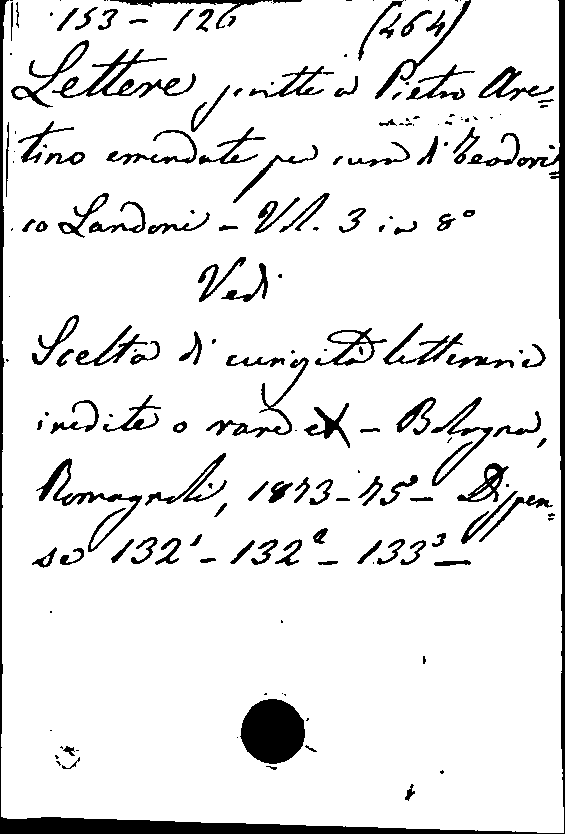 153 - 126 (464)
Lettere scritte a Pietro Are=
tino emendate per cura di Teodori=
co Landoni - Vol. 3 in 8°
Vedi
Scelta di curiosità letterarie
inedite o rare - Bologna,
Romagnoli, 1873-75 - Dispen=
se 132¹ - 132² - 133³ -